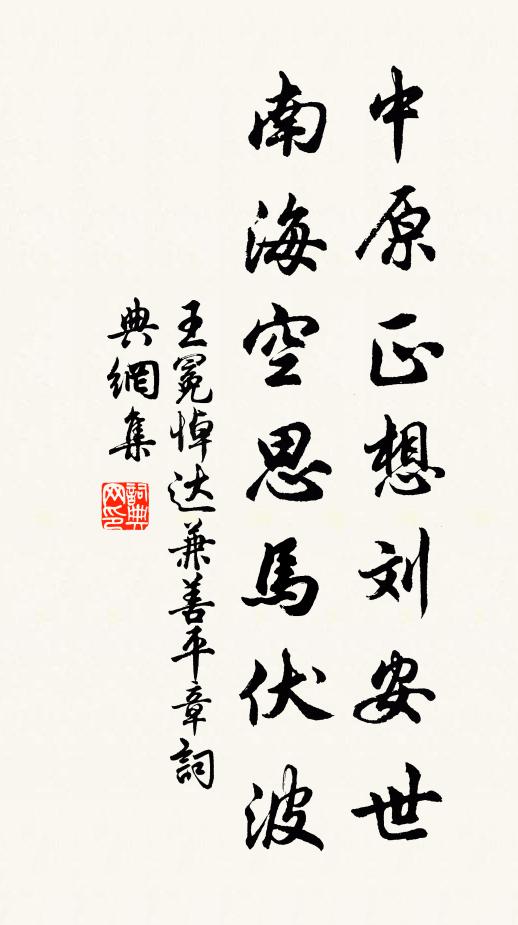 中原正想刘安世
南海空思馬伏波
王冕悼达兼善平章詞
典網集
詞典网印